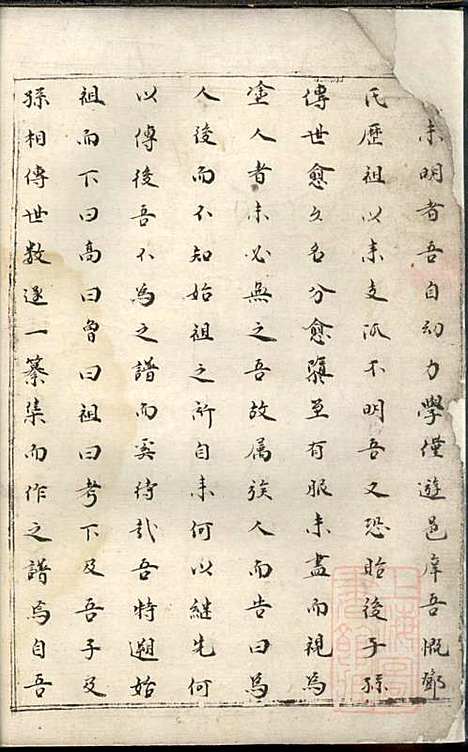 未明者吾自幼力學僅遊邑庠吾慨鄭
氏歷祖以来支派不明吾又恐貽後子孫
傳世愈久名分愈䮕至有服未盡而視為
塗人者未必無之吾故属族人而告曰為
人後而不知始祖之所自来何以継先何
以傳後吾不為之譜而奚待哉吾特遡始
祖而下曰高曰曾曰祖曰考下及吾子及
孫相傳世数逐一纂集而作之譜焉自吾